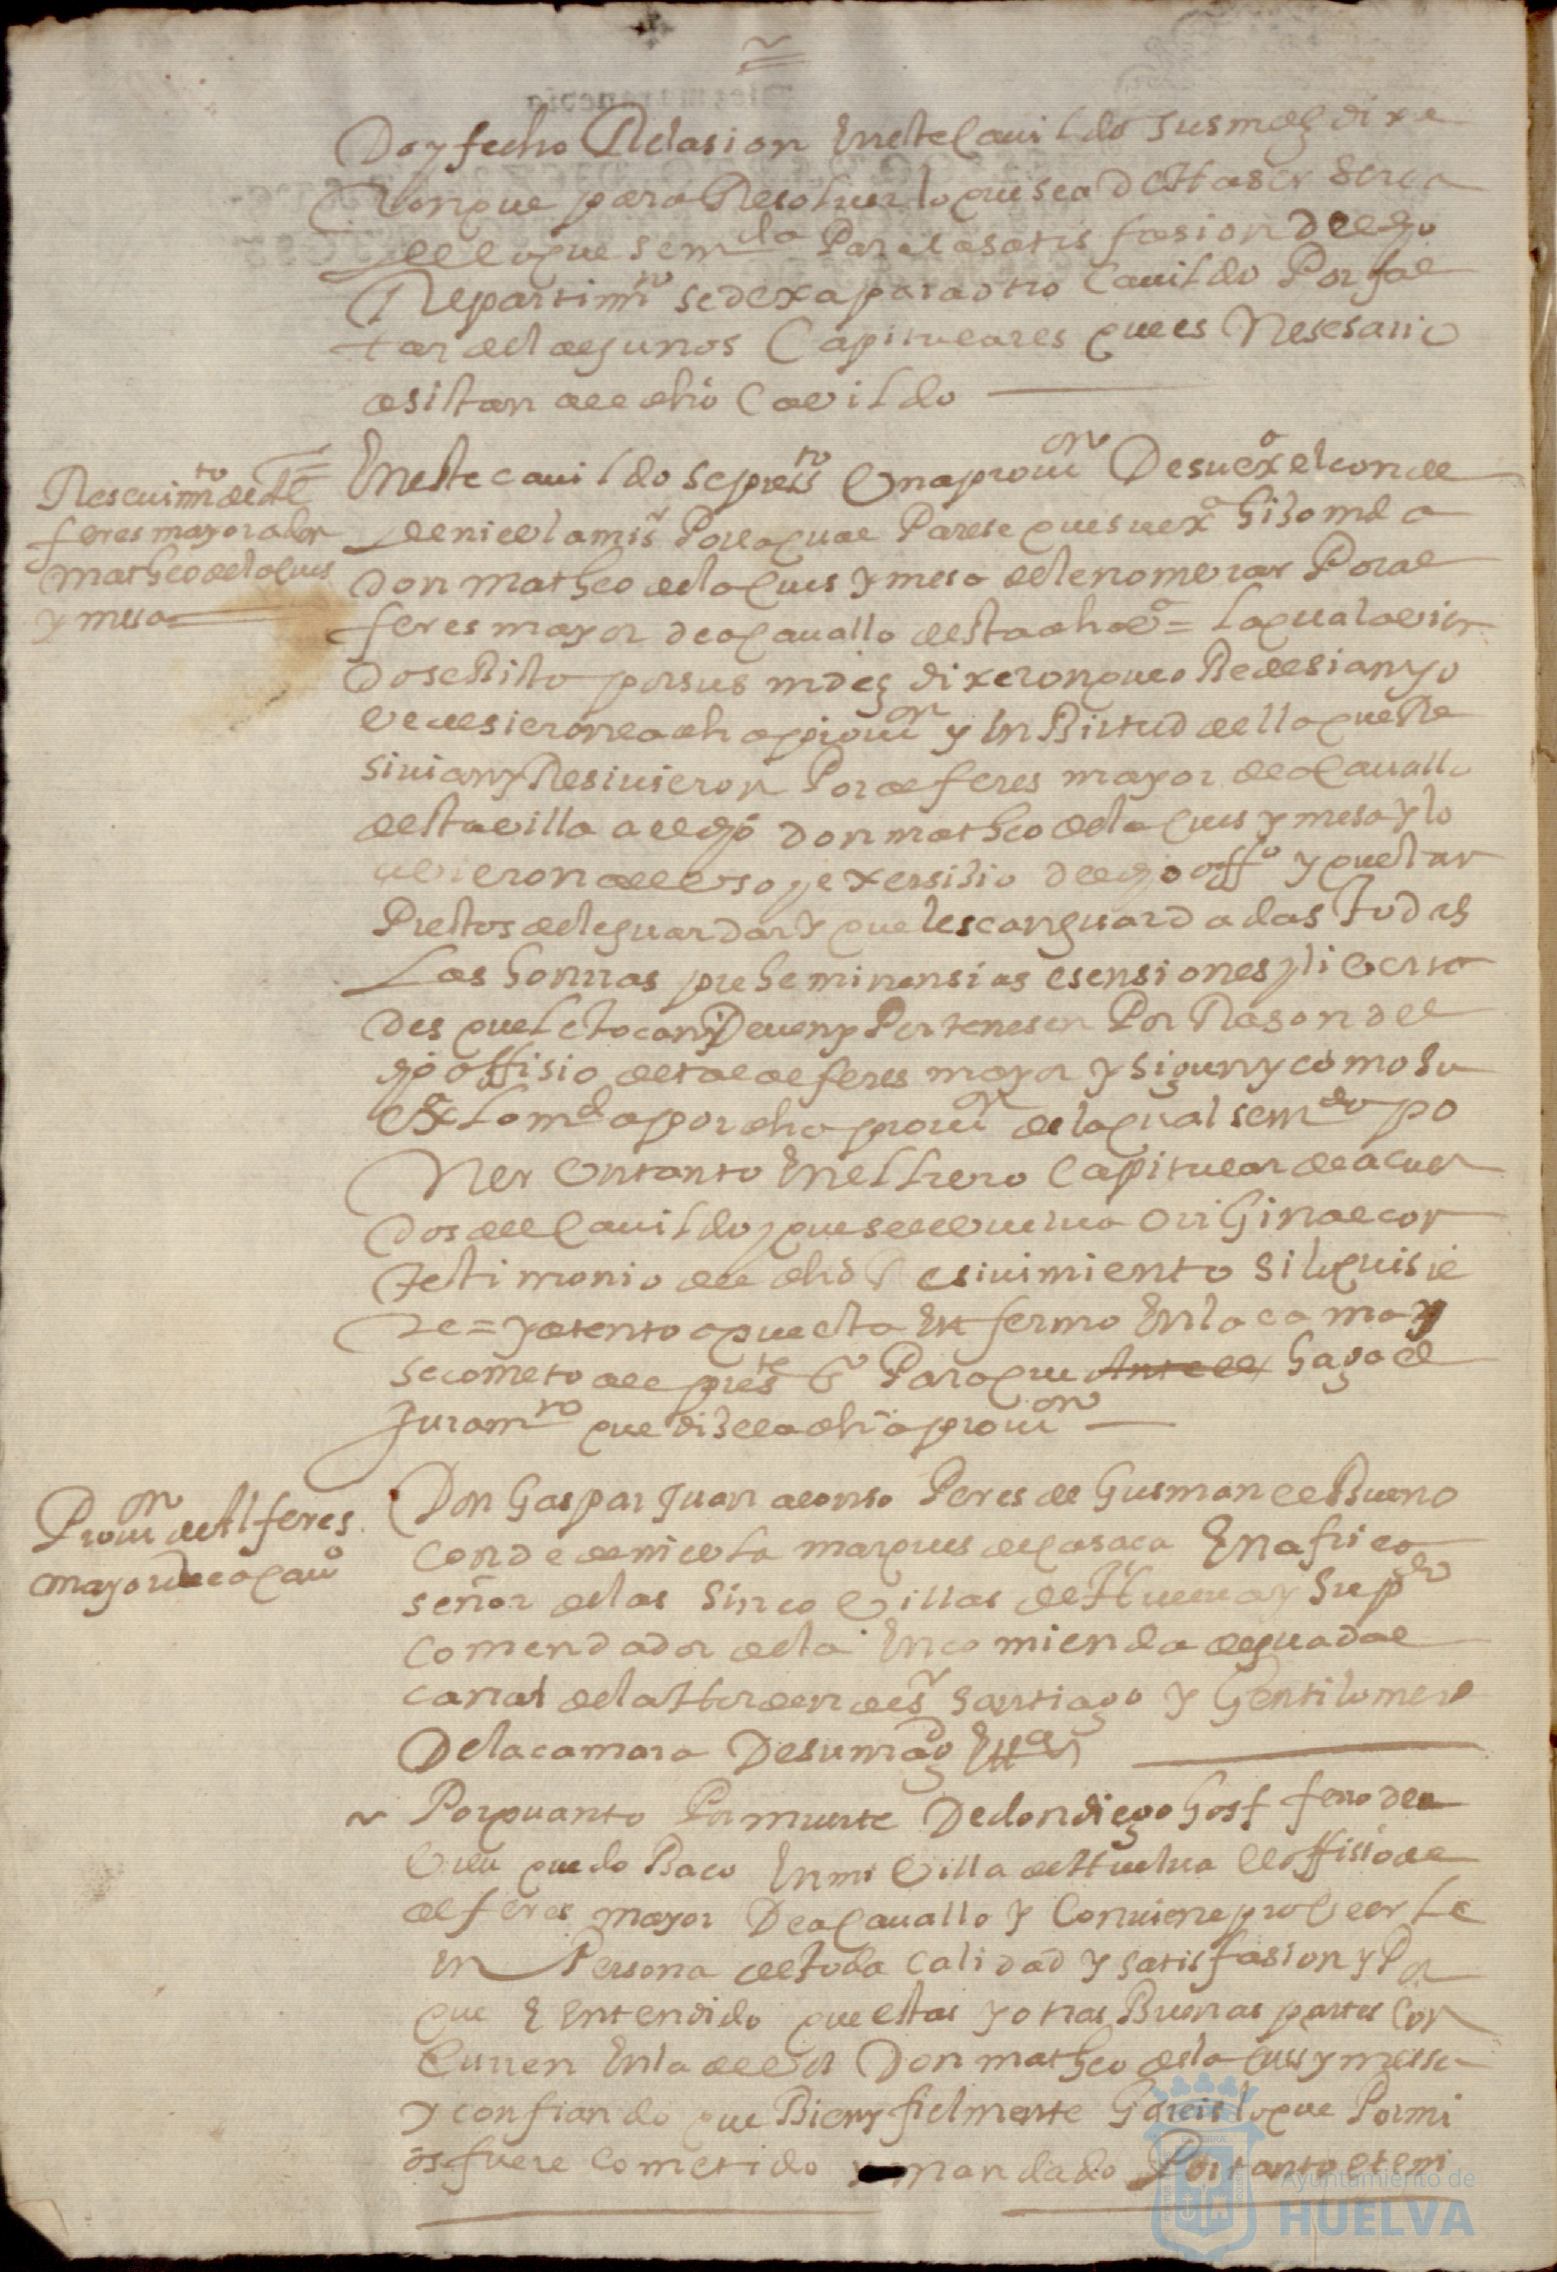 Doy fecho Relasion En este Cauildo sus mdes dixe
Ron que para Resoluer lo que sea de Haser serca
de lo que se mda Para la satisfasion del dho
Repartimto se dexa para otro Cauildo Por fal
tar de algunos Capitulares que es Nesesario
asistan al dho Cavildo
Reseuimto de Al
feres mayor a don
Matheo de la Cueis
y mesa
En este cauildo se presto Una prouion De su exa el conde
de niebla mi sr Por la qual Parese que su exa hiso md a
don matheo de la Cueis y mesa de le nombrar Por al
feres mayor de a Cauallo desta dha va = La qual avien
dose Visto por sus mdes dixeron que oBedesian y o
bedesieron la dha prouion y En Birtud della que Re
siuian y Resiuieron Por alferes mayor de a Cauallo
desta villa a el dho don matheo de la Cueis y mesa y lo
uvieron al uso y exersisio del dho offo y que estan
Prestos de le guardar y que le sean guardadas todas
Las honrras preheminensias esensiones y liberta
des que le tocan y Deuen y Pertenesen Por Rason del
dho offisio de tal alferes mayor y sigun y como su
exa lo mda por dha prouion de la qual se mdo po
Ner Un tanto En el Libro Capitular de acuer
dos del Cauildo y que se le buelua original con
testimonio del dho Resiuimiento si lo quisie
re = y atento a que esta Enfermo En la cama y
se cometio al preste esno Para que haga el
Juramto que dise la dha prouion
Prouon de Alferes
mayor de a Cauo
Don Gaspar Juan alonso Peres de Gusman el Bueno
Conde de niebla marques de Casasa En africa
señor de las sinco Villas de Huelua y su pdo
Comendador de la Encomienda de guadal
canal de la Horden de sr santiago y Gentilombre
De la camara De su magd Etta
Por quanto Por muerte De don diego
quedo Baco En mi Villa de Huelua el offisio de
alferes mayor De a Cauallo y Conuiene proveerle
en Persona de toda Calidad y satisfasion y Por
que E Entendido que estas y otras Buenas partes Con
Curren En la de vos Don matheo de la Cueis y messa
y confiando que Bien y fielmente hareis lo que Por mi
os fuere Cometido y mandado Por tanto
Ayuntamiento de
HUELVA